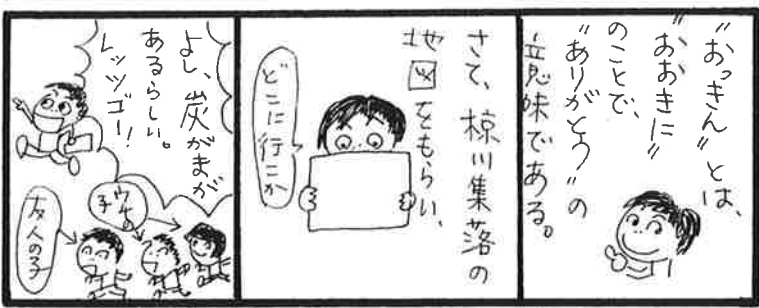 “おっきん”とは、
“おおきに”
のことで、
“ありがとう”の
意味である。
さて、椋川集落の
地図をもらい、
どこに行こか
よし、炭がまが
あるらしい。
レッツゴー!
ウチの
子
友人の子